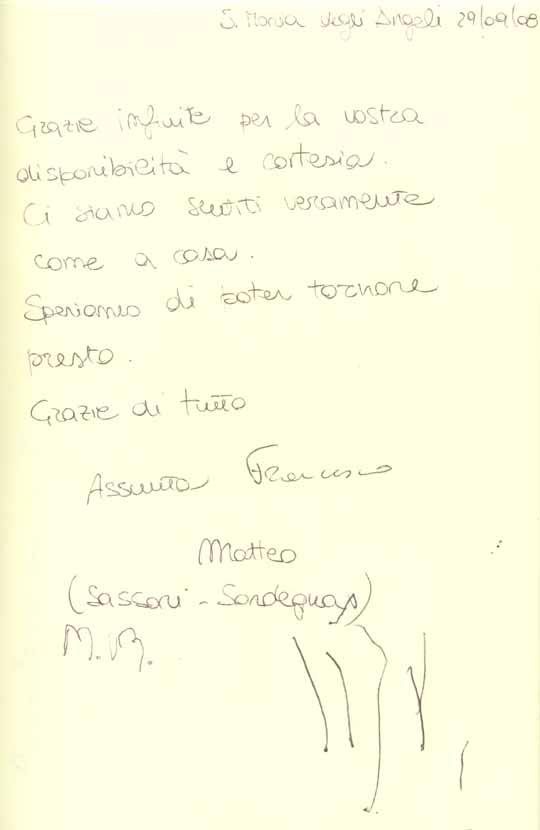 S. Maria degli Angeli 29/09/08
Grazie infinite per la vostra
disponibilità e cortesia.
Ci siamo sentiti veramente
come a casa.
Speriamo di poter tornare
presto.
Grazie di tutto
Assunta Francesco
Matteo
(Sassari - Sardegna)
M. B.